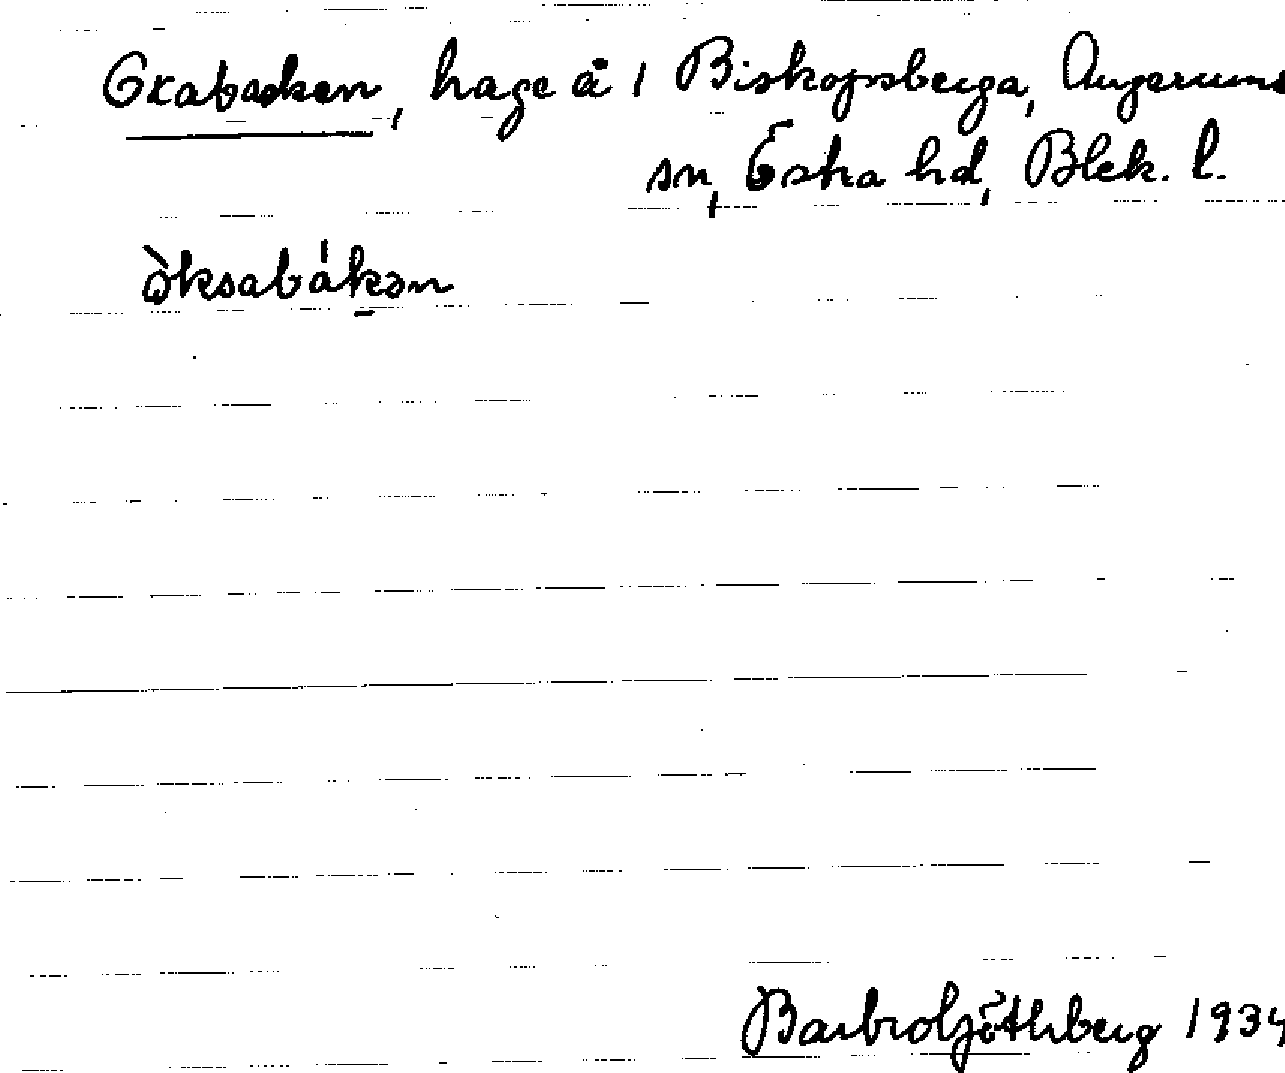 Oxabacken, hage å 1 Biskopsberga, Augerums
sn, Östra hd, Blek. l.
òksabákən
Barbro Göthberg 1934